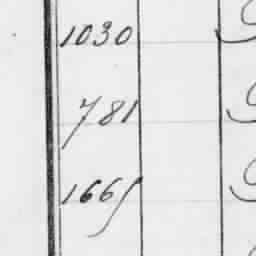 1030
781
1665